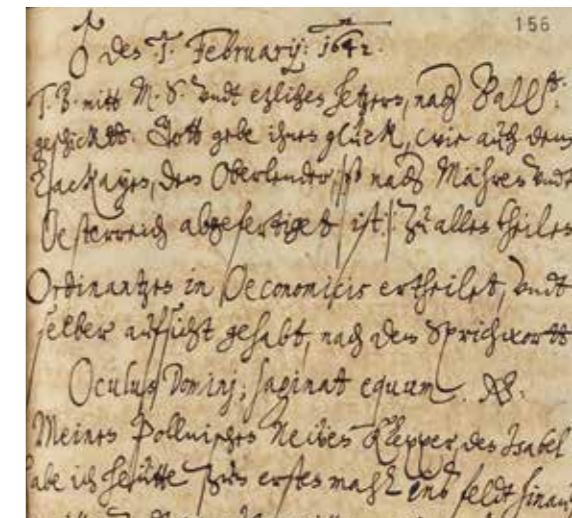 156
♂ den 1. Februarij: 1642.
T. B. mitt M. S. vndt etzlichen hetzern, nach Ballst:
geschicktt. Gott gebe ihnen glück, wie auch dem
Lackayen, dem Oberlender, so nach Mähren vndt
Oesterreich abgefertiget ist. Zu allen theilen
Ordinantzen in Oeconomicis ertheilet, vndt
selber auffsicht gehabt, nach dem Sprichwortt
Oculus Dominj; saginat equum. NB.
Meinen Pollnischen Neẅen Klepper, den Isabel
habe ich heütte zum ersten mahl inß feldt hinauß